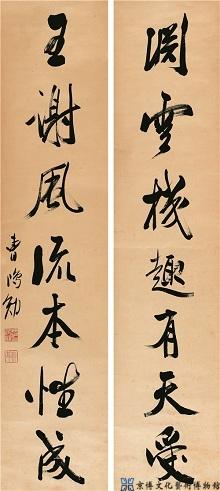 渊云机趣有天受
王谢风流本性成
曹鸿勋
京博文化藝術博物館